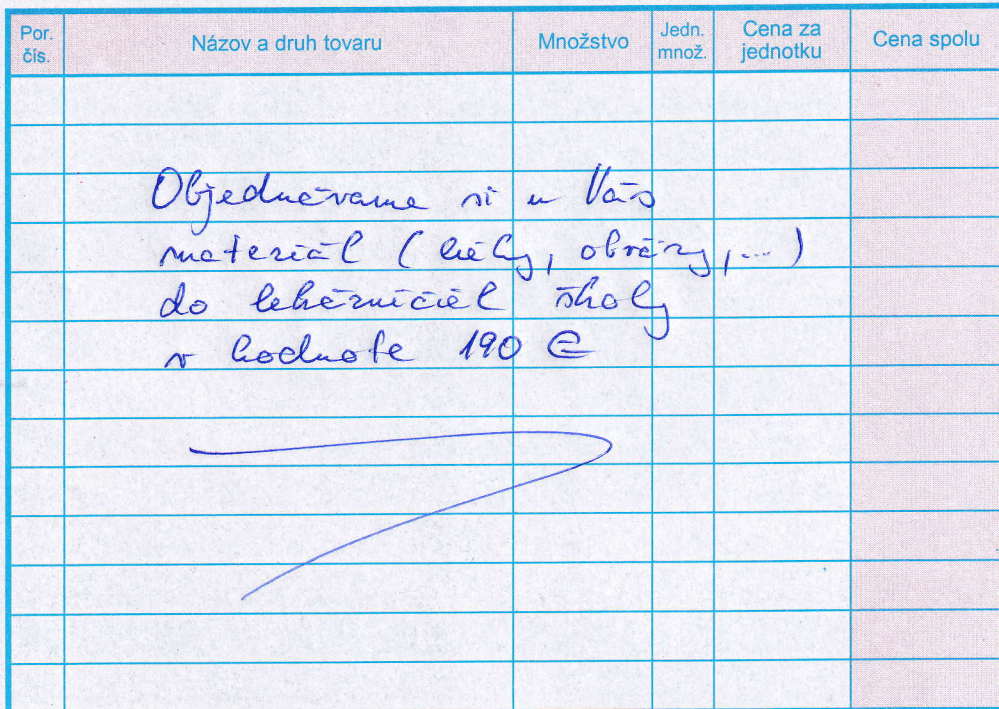 Por. čís.
Názov a druh tovaru
Množstvo
Jedn. množ.
Cena za jednotku
Cena spolu
Objednávame si u Vás
materiál (lieky, obväzy,...)
do lekárničiek školy
v hodnote 190 €